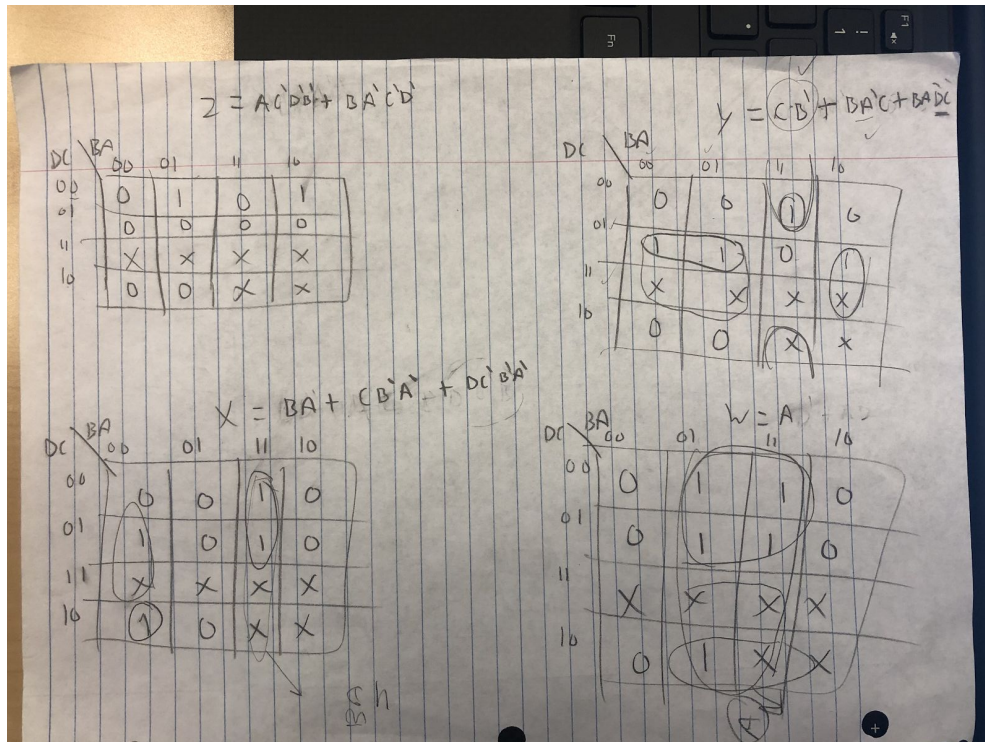 Fn
1 ! !
F1
Z = AC'D'B' + BA'C'D'
DC BA 00 01 11 10
00 0 1 0 1
01 0 0 0 0
11 X X X X
10 0 0 X X
y = CB' + BA'C + BADC'
DC BA 00 01 11 10
00 0 0 1 0
01 1 1 0 1
11 X X X X
10 0 0 X X
X = BA + CB'A' + DC'B'A'
DC BA 00 01 11 10
00 0 0 1 0
01 1 0 1 0
11 X X X X
10 1 0 X X
W = A
DC BA 00 01 11 10
00 0 1 1 0
01 0 1 1 0
11 X X X X
10 0 1 X X
A